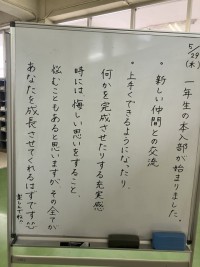 5/29(木)
一年生の本入部が始まりました。
・新しい仲間との交流
・上手くできるようになったり、
何かを完成させたりする充実感
時には、悔しい思いをすること、
悩むこともあると思いますが、その全てが
あなたを成長させてくれるはずです!!